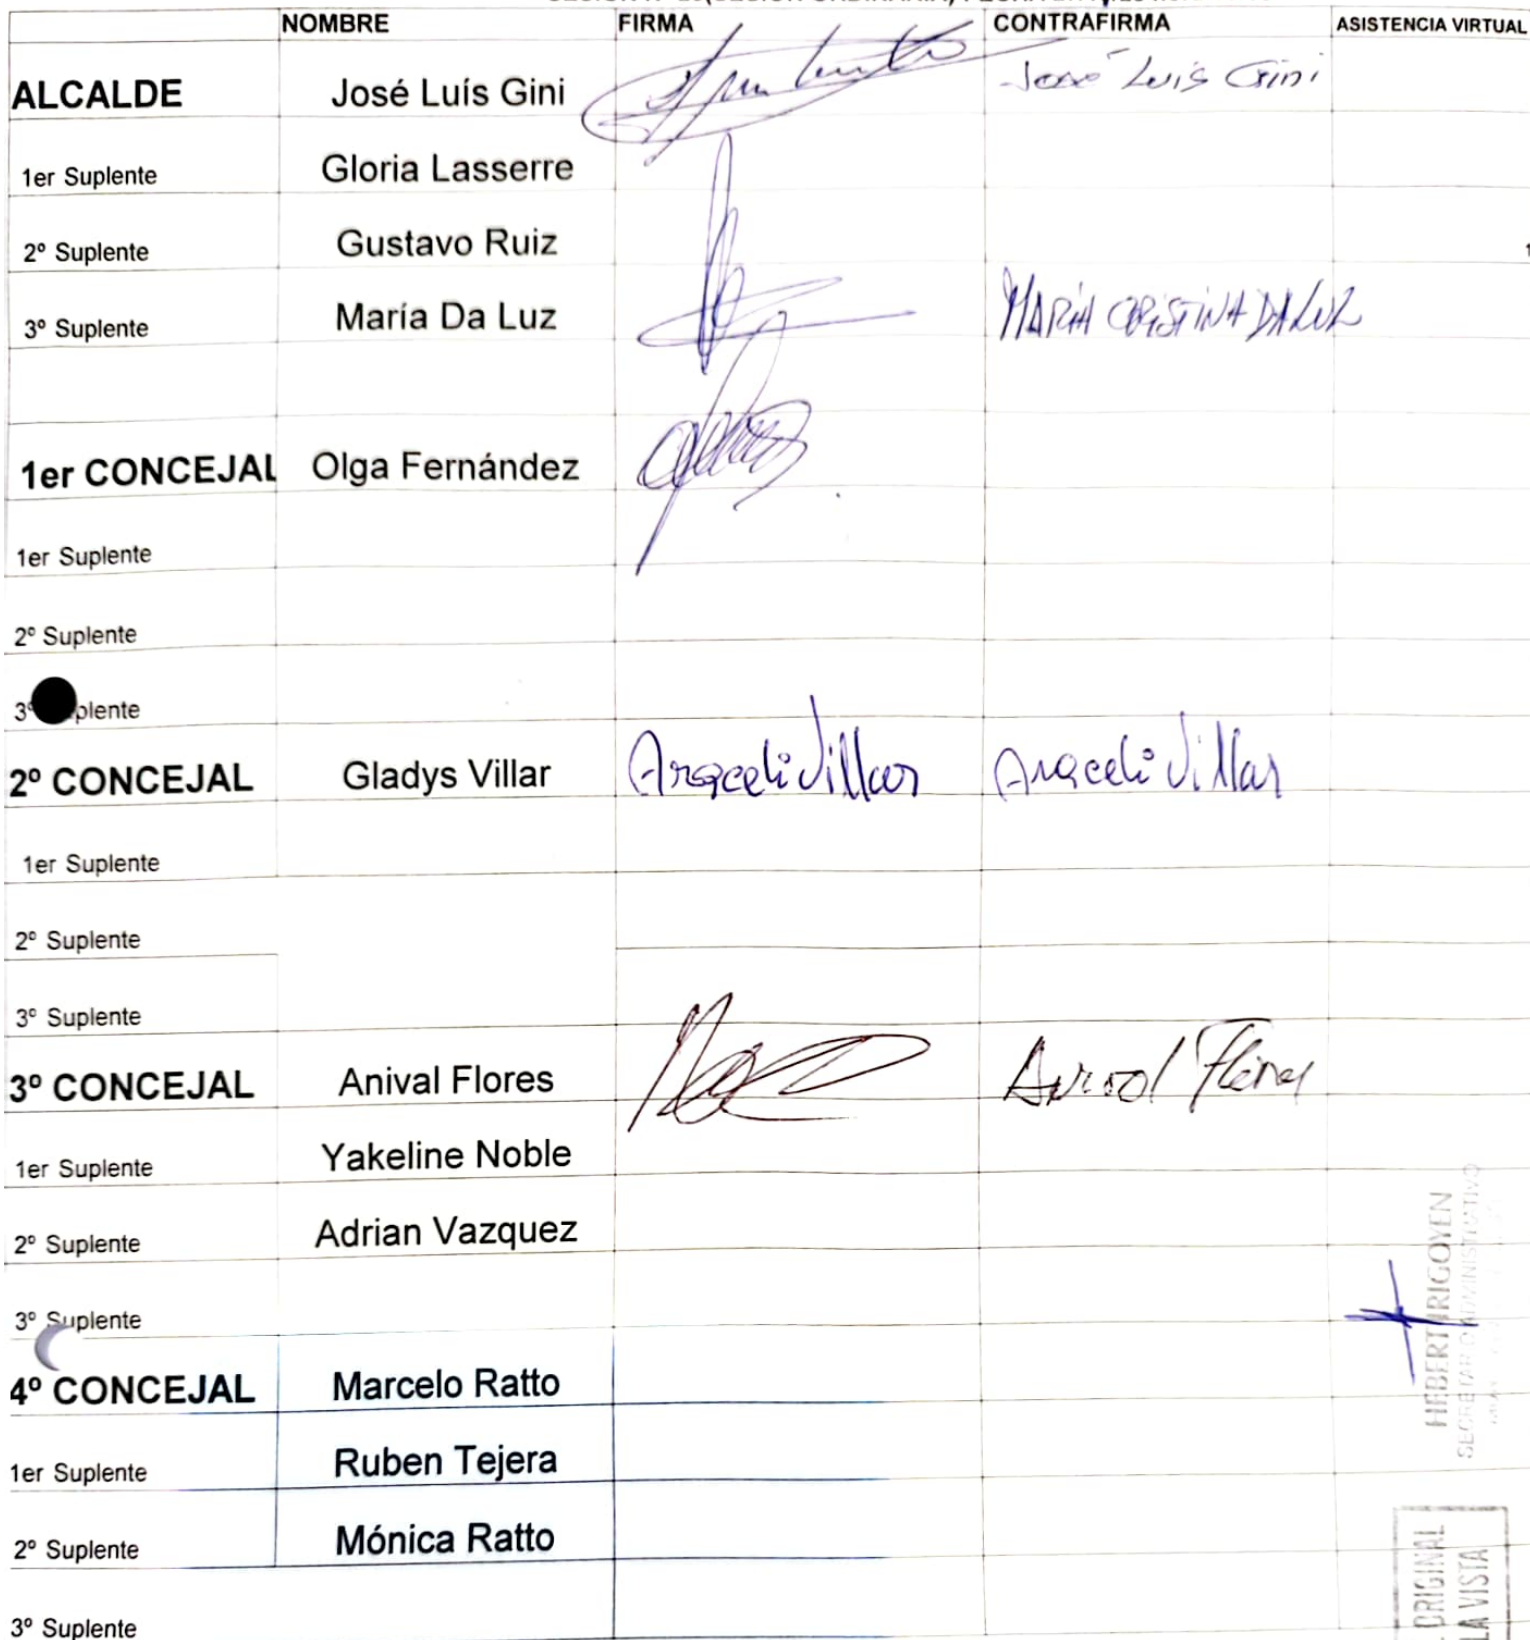 NOMBRE FIRMA CONTRAFIRMA ASISTENCIA VIRTUAL
ALCALDE José Luís Gini José Luis Gini
1er Suplente Gloria Lasserre
2º Suplente Gustavo Ruiz
3º Suplente María Da Luz MARIA CRISTINA DA LUZ
1er CONCEJAL Olga Fernández
1er Suplente
2º Suplente
3º plente
2º CONCEJAL Gladys Villar Araceli Villar Araceli Villar
1er Suplente
2º Suplente
3º Suplente
3º CONCEJAL Anival Flores Anival Flores
1er Suplente Yakeline Noble
2º Suplente Adrian Vazquez
3º Suplente
4º CONCEJAL Marcelo Ratto
1er Suplente Ruben Tejera
2º Suplente Mónica Ratto
3º Suplente
HEBERT IRIGOYEN
ORIGINAL
LA VISTA